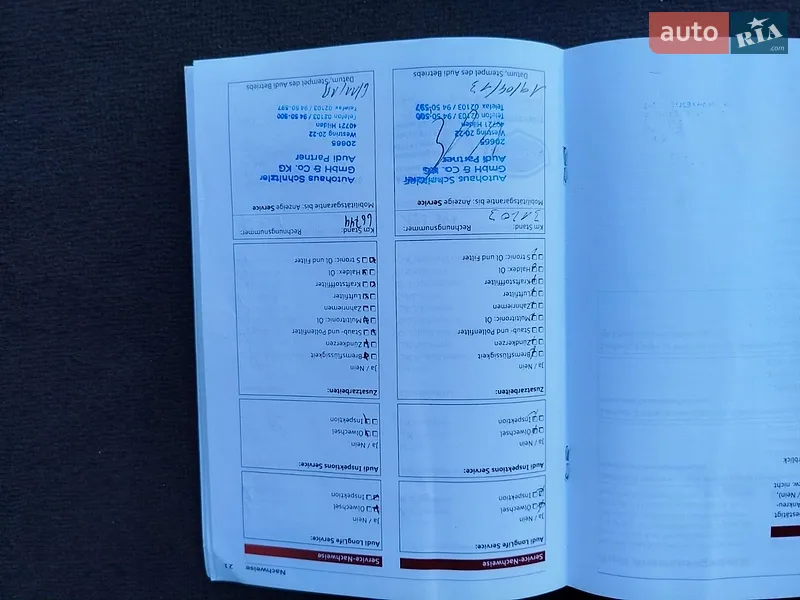 auto
RIA
.com
estätigt
Ankreu-
/ Nein),
zw. nicht
rblick
Nachweise
Service-Nachweise
Audi LongLife Service:
Ja / Nein
Ölwechsel
Inspektion
Audi Inspektions Service:
Ja / Nein
Ölwechsel
Inspektion
Zusatzarbeiten:
Ja / Nein
Bremsflüssigkeit
Zündkerzen
Staub- und Pollenfilter
Multitronic: Öl
Zahnriemen
Luftfilter
Kraftstofffilter
Haldex: Öl
S tronic: Öl und Filter
Km Stand: Rechnungsnummer:
31203
Mobilitätsgarantie bis: Anzeige Service
Autohaus Schnitzler
GmbH & Co. KG
Audi Partner
20665
Westring 20-22
40721 Hilden
Telefon 02103 / 94 50-500
Telefax 02103 / 94 50-597
19/04/13
Datum, Stempel des Audi Betriebs
Service-Nachweise
Audi LongLife Service:
Ja / Nein
Ölwechsel
Inspektion
Audi Inspektions Service:
Ja / Nein
Ölwechsel
Inspektion
Zusatzarbeiten:
Ja / Nein
Bremsflüssigkeit
Zündkerzen
Staub- und Pollenfilter
Multitronic: Öl
Zahnriemen
Luftfilter
Kraftstofffilter
Haldex: Öl
S tronic: Öl und Filter
Km Stand: Rechnungsnummer:
66744
Mobilitätsgarantie bis: Anzeige Service
Autohaus Schnitzler
GmbH & Co. KG
Audi Partner
20665
Westring 20-22
40721 Hilden
Telefon 02103 / 94 50-500
Telefax 02103 / 94 50-597
Datum, Stempel des Audi Betriebs